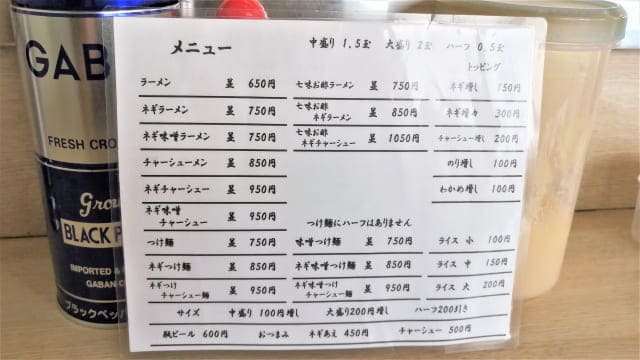 GAB
FRESH CRO
Grou
BLACK P
IMPORTED &
GABAN C
ブラックペッパ
メニュー 中盛り 1.5玉 大盛り 2玉 ハーフ 0.5玉
トッピング
ラーメン 並 650円 七味お酢ラーメン 並 750円 ネギ増し 150円
ネギラーメン 並 750円 七味お酢ネギラーメン 並 850円 ネギ増々 300円
ネギ味噌ラーメン 並 750円 七味お酢ネギチャーシュー 並 1050円 チャーシュー増し 200円
チャーシューメン 並 850円 のり増し 100円
ネギチャーシュー 並 950円 わかめ増し 100円
ネギ味噌チャーシュー 並 950円 つけ麺にハーフはありません
つけ麺 並 750円 味噌つけ麺 並 750円 ライス 小 100円
ネギつけ麺 並 850円 ネギ味噌つけ麺 並 850円 ライス 中 150円
ネギつけチャーシュー麺 並 950円 ネギ味噌つけチャーシュー麺 並 950円 ライス 大 200円
サイズ 中盛り 100円増し 大盛り200円増し ハーフ 200引き
瓶ビール 600円 おつまみ ネギあえ 450円 チャーシュー 500円